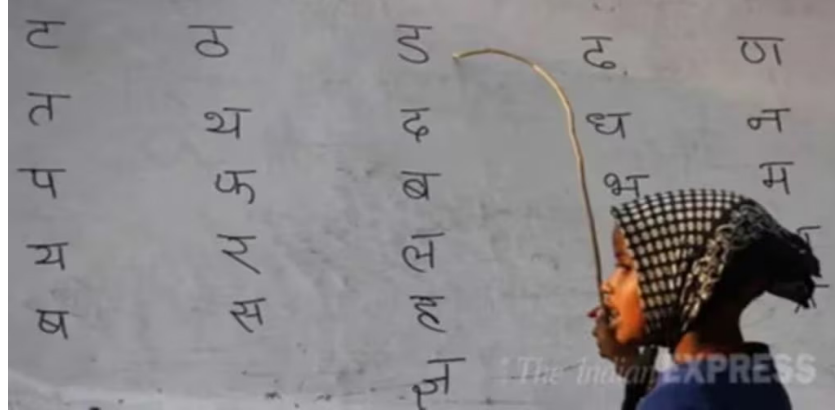 ट ठ ड ढ ण
त थ द ध न
प फ ब भ म
य ल
ष स
ज्ञ
The Indian EXPRESS